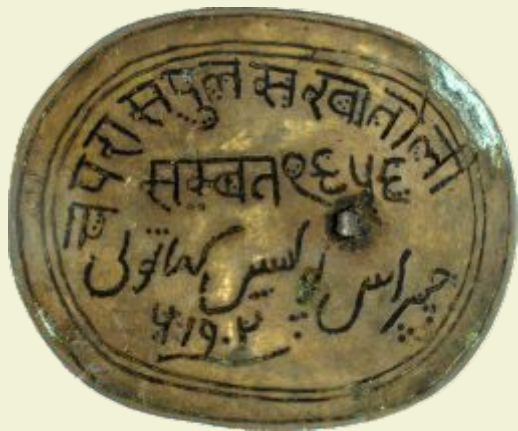 चपरास पुलस खातोली
सम्बत १९५९
چپراس پولیس کھاتولی
۱۹۰۲ء